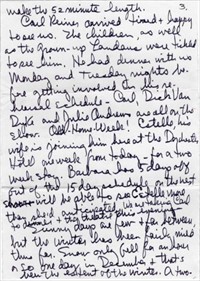 make the 52 minute length.
3.
Carl Reiner arrived tired & happy
to see us. The children, as well
as the grown-up Landaus were tickled
to see him. He had dinner with us
Monday and Tuesday nights be-
fore getting involved in his re-
hearsal schedule - Carl, Dick Van
Dyke and Julie Andrews are all on the
show. Old Home Week! Estelle his
wife is joining him here at the Dorchester
Hotel one week from today - for a two
week stay. Barbara has 5 days off
out of the 15 day schedule on the next
show
will be able to see Estelle more
than she'd anticipated. We are taking Carl
to dinner
Sunny days are few & far between
but the winter has been fairly mild
thus far. Snow only fell for an hour
or so one day in December & that's
been the extent of the winter. A two.